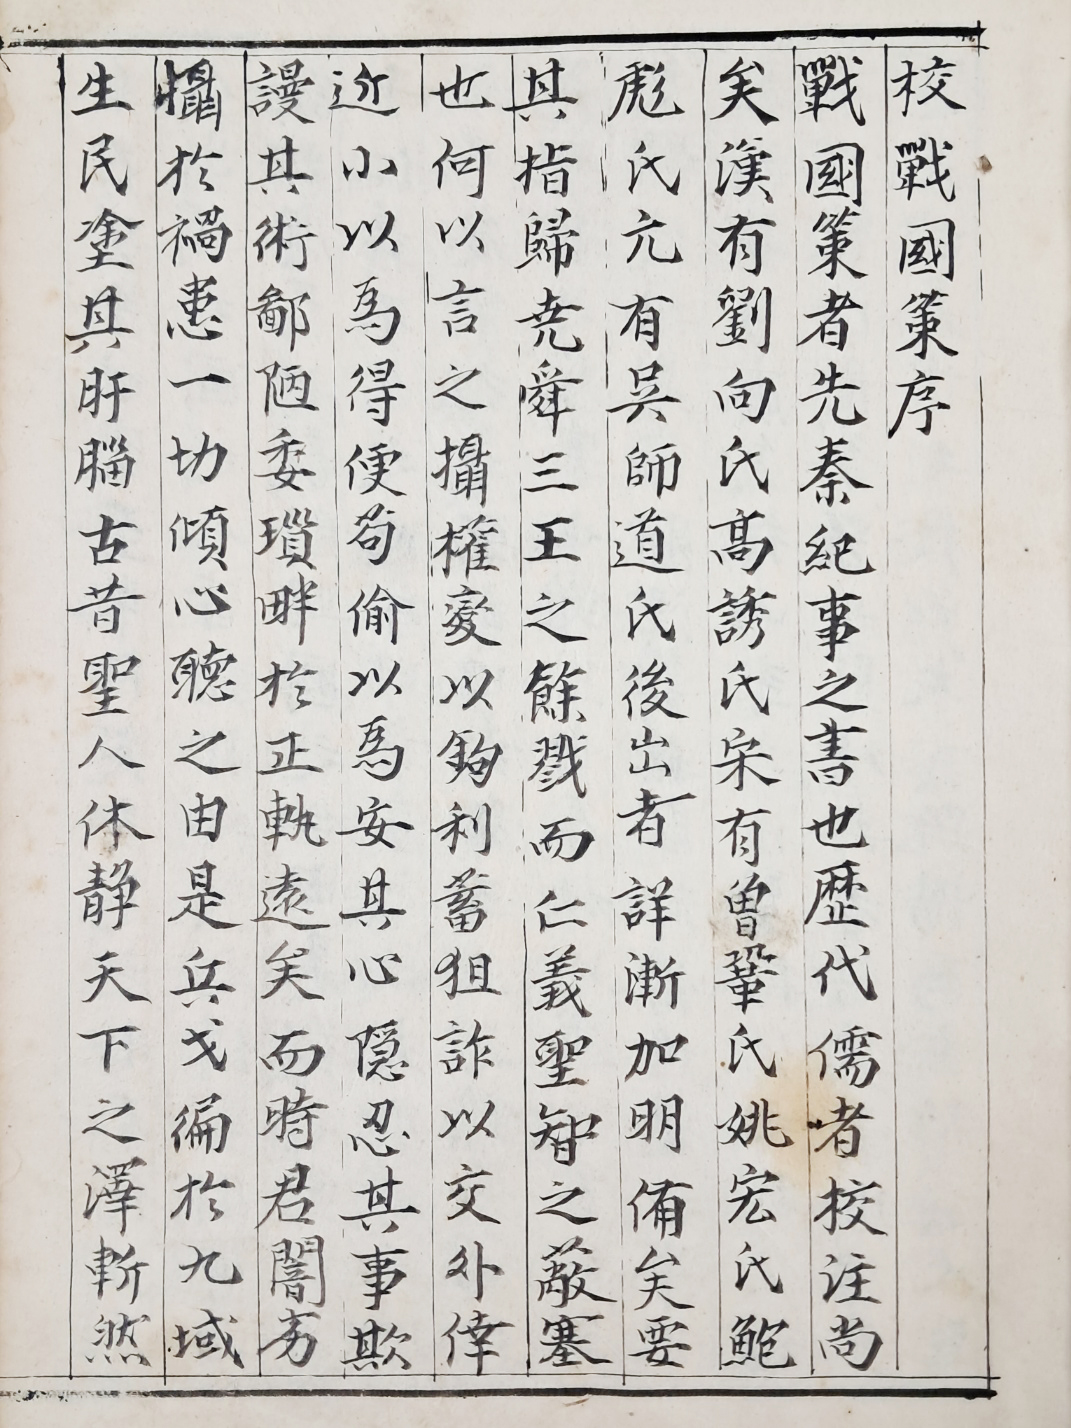 校戰國策序
戰國策者先秦紀事之書也歷代儒者校注尚
矣漢有劉向氏高誘氏宋有曾鞏氏姚宏氏鮑
彪氏元有吳師道氏後出者詳漸加明備矣要
其指歸堯舜三王之餘戮而仁義聖智之蔽塞
也何以言之攝權變以鉤利蓄狙詐以交外倖
近小以為得便苟偷以為安其心隱忍其事欺
謾其術鄙陋委瑣畔於正軌遠矣而時君闇劣
懾於禍患一切傾心聽之由是兵戈徧於九域
生民塗其肝腦古昔聖人休靜天下之澤斬然